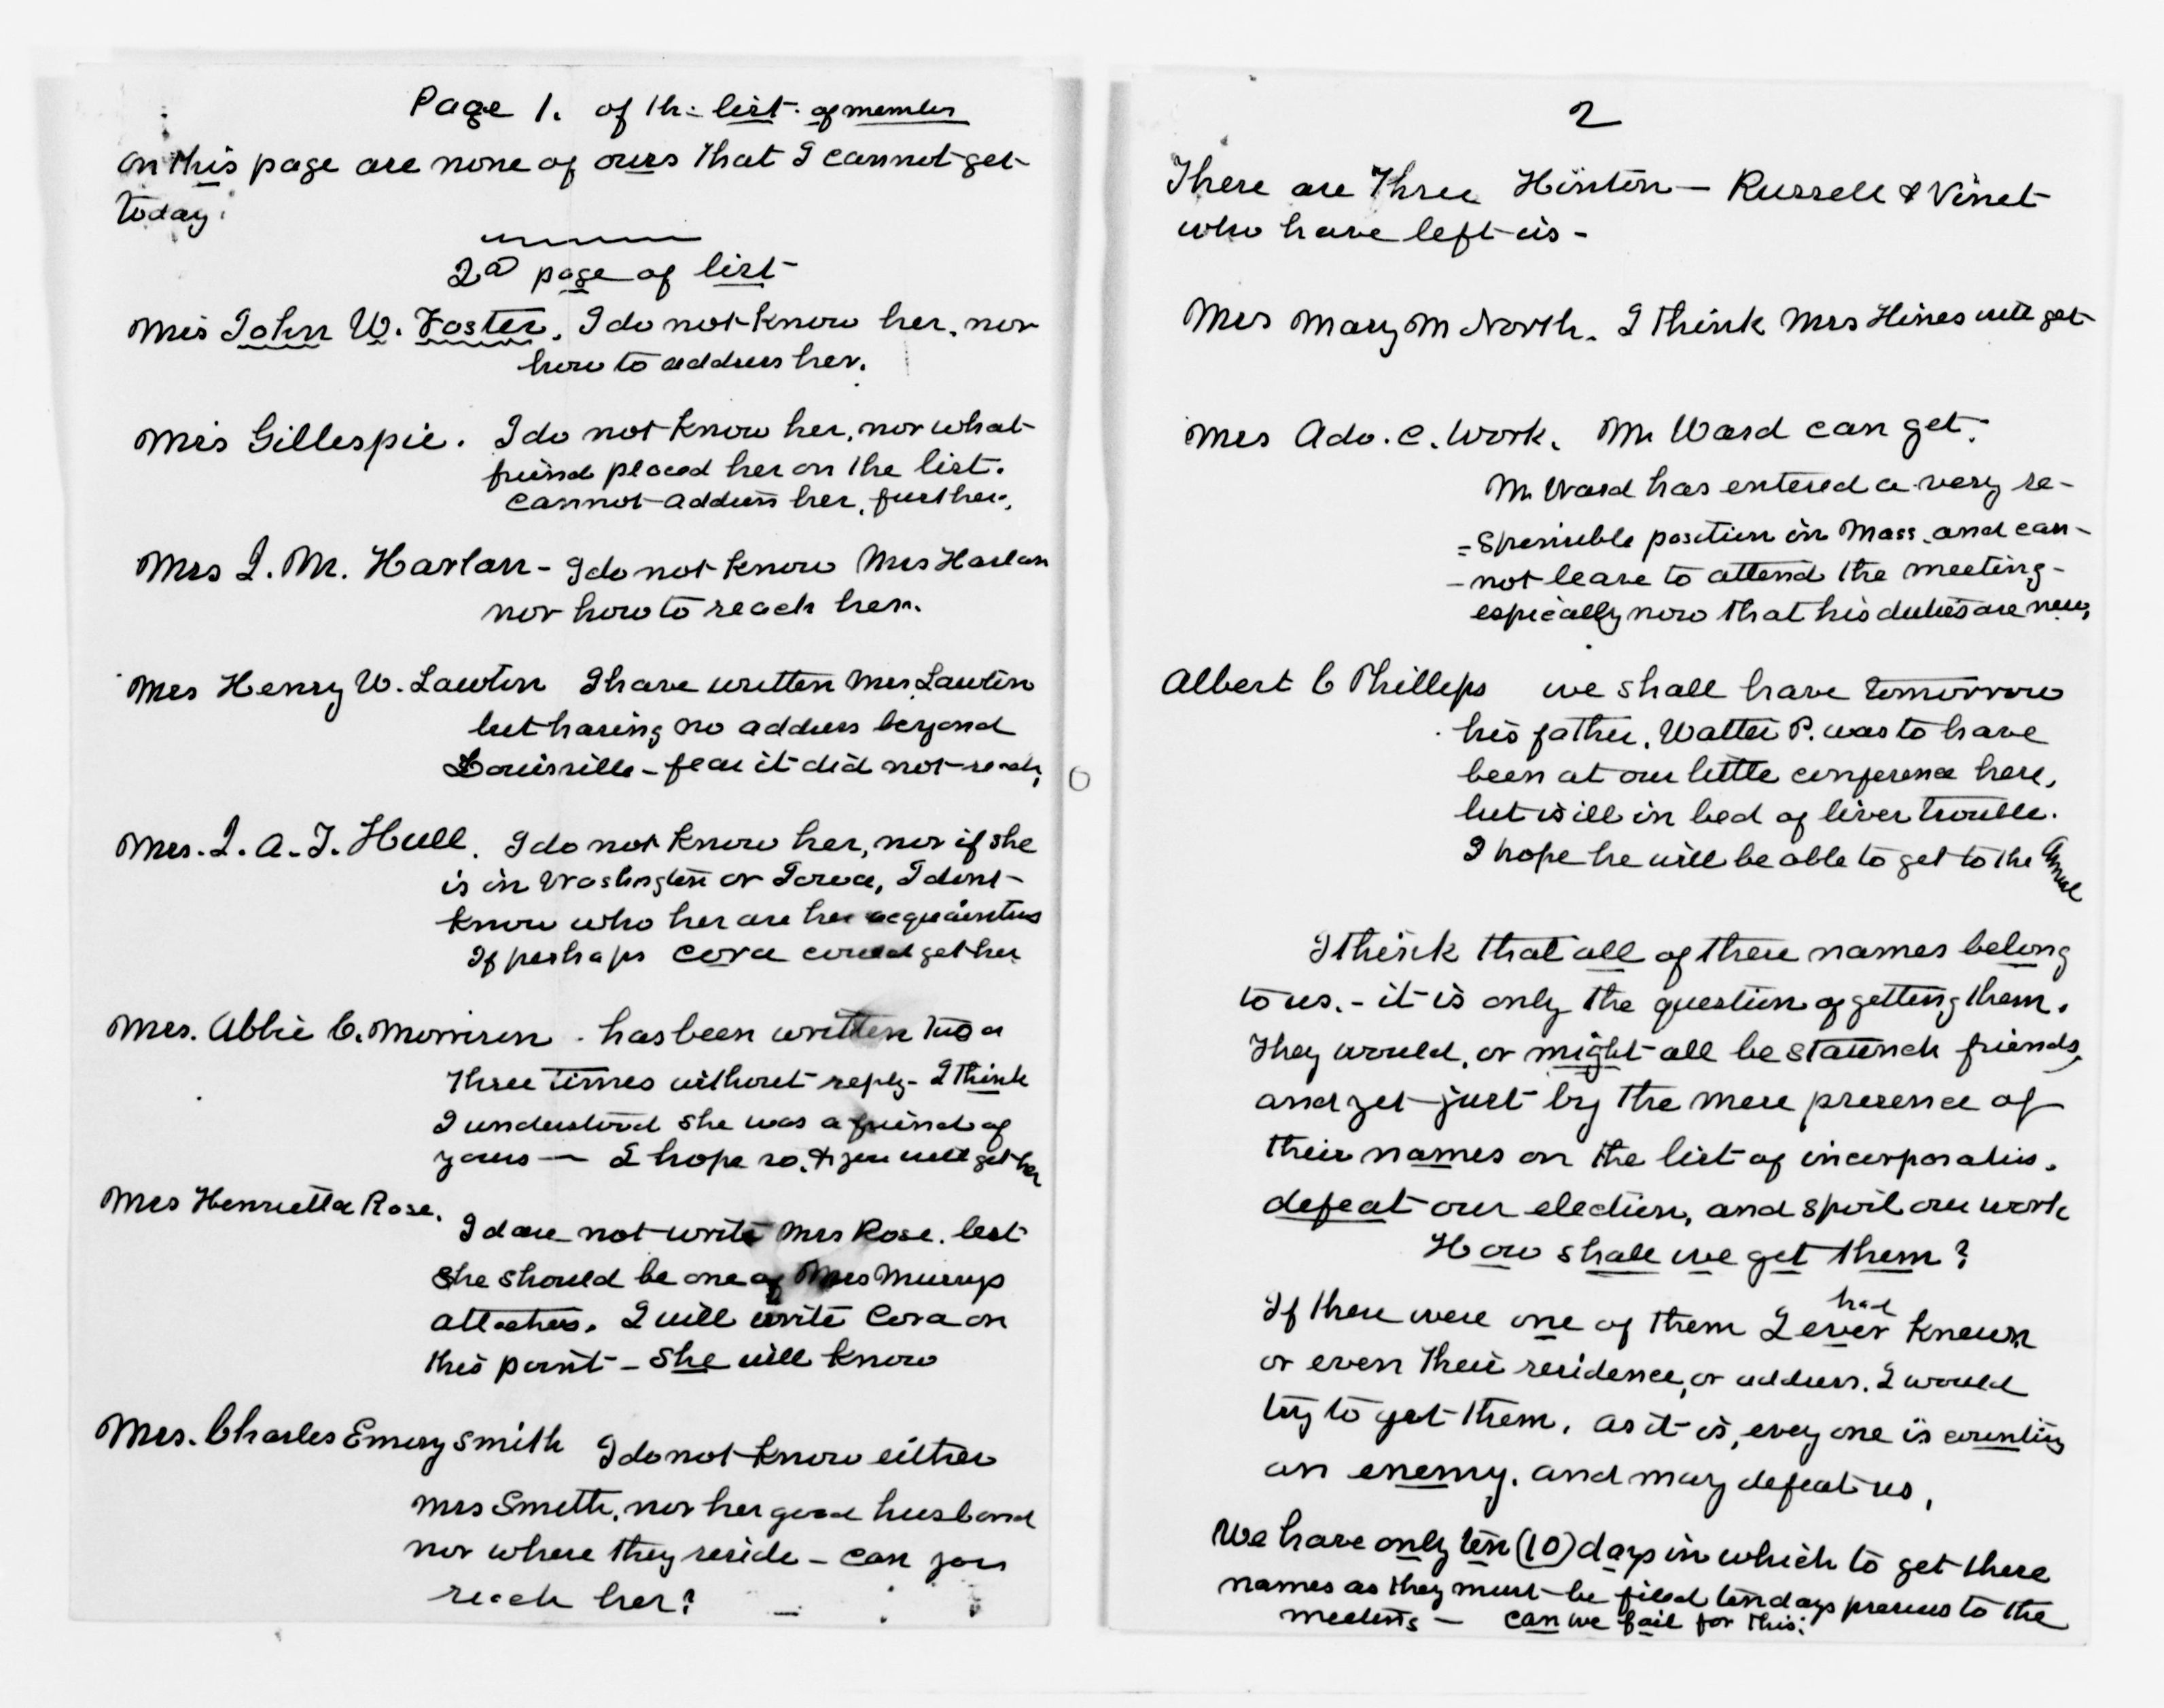 Page 1. of the list of member
on this page are none of ours that I cannot get
today.
2d page of list
Mrs John W. Foster, I do not know her, nor
how to address her.
Mrs Gillespie. I do not know her, nor what
friend placed her on the list.
Cannot address her, further.
Mrs J. M. Harlan - I do not know Mrs Harlan
nor how to reach her.
Mrs Henry W. Lawton I have written Mrs Lawton
but having no address beyond
Louisville - fear it did not reach,
Mrs. J. A. T. Hull. I do not know her, nor if she
is in Washington or Iowa, I dont
know who her are her
If perhaps Cora could get her
Mrs. Abbie C. Morrison. has been written two or
three times without reply - I think
I understood she was a friend of
yours — I hope so, & you will get her
Mrs Henrietta Rose.
I dare not write Mrs Rose. lest
she should be one of Mrs
I will write Cora on
this point - she will know
Mrs. Charles Emory Smith I do not know either
Mrs Smith, nor her good husband
nor where they reside - can you
reach her?
2
There are Three Hinton — Russell & Vinet
who have left us -
Mrs Mary M North. I think Mrs Hines will get
Mrs Ada. C. Work. Mr Ward can get.
Mr Ward has entered a very re-
=sponsible position in Mass. and can-
-not leave to attend the meeting -
especially now that his duties are new,
Albert C Phillips we shall have tomorrow
his father, Walter P. was to have
been at our little conference here,
but is ill in bed of liver trouble.
I hope he will be able to get to the Annual
I think that all of these names belong
to us. - it is only the question of getting them.
They would, or might all be staunch friends,
and yet just by the mere presence of
their names on the list of incorporators.
defeat our election, and spoil our work
How shall we get them?
had
If there were one of them I ever known
or even their residence, or address. I would
try to get them, as it is, every one is counting
an enemy. and may defeat us,
We have only ten (10) days in which to get these
names as they must be filed ten days previous to the
meeting — can we fail for this?